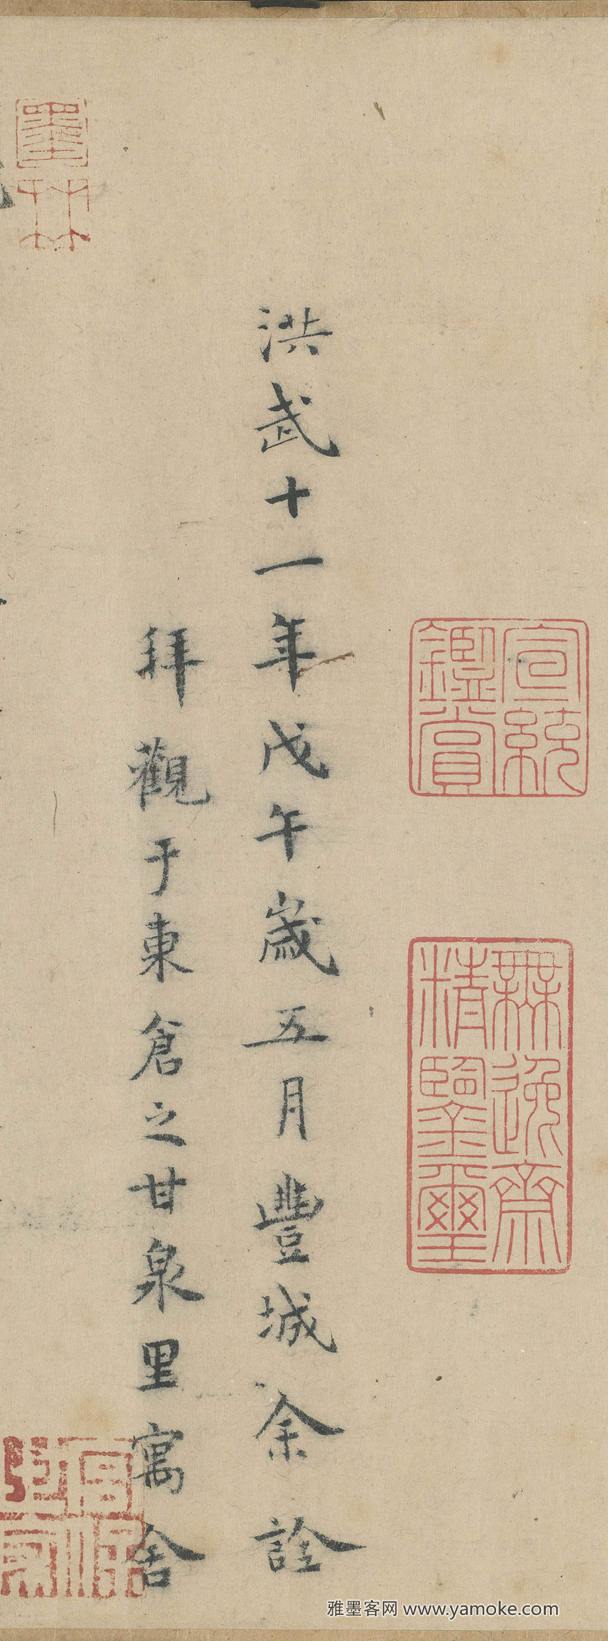 宣統鑑賞
無逸齋精鑒璽
洪武十一年戊午歲五月豐城余詮
拜觀于東倉之甘泉里寓舍
墨林
雅墨客网 www.yamoke.com